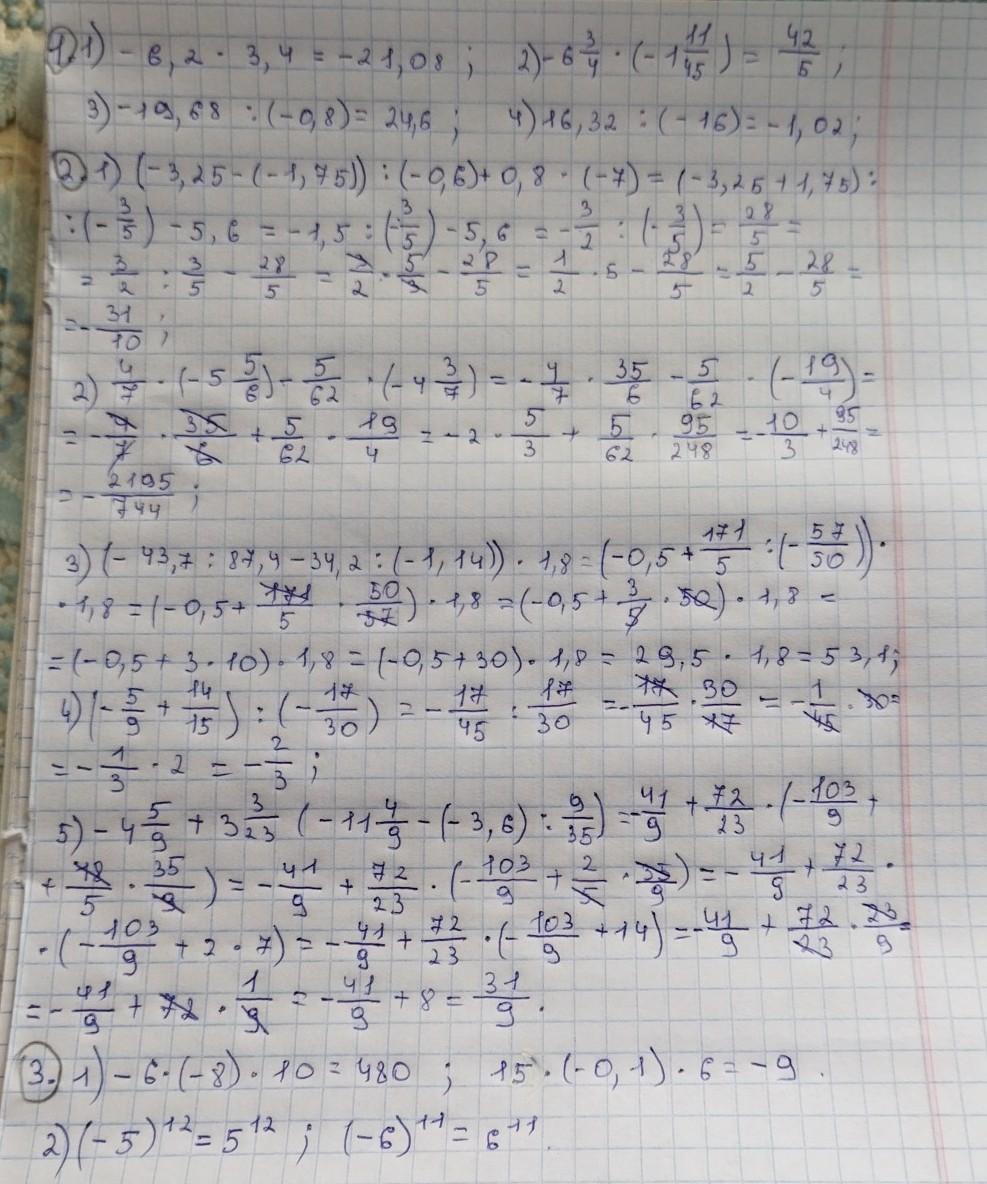 1. 1) - 6,2 · 3,4 = -21,08 ; 2) -6 3/4 · (-1 11/45) = 42/5 ;
3) -19,68 : (-0,8) = 24,6 ; 4) 16,32 : (-16) = -1,02 ;
2. 1) (-3,25 - (-1,75)) : (-0,6) + 0,8 · (-7) = (-3,25 + 1,75) :
: (-3/5) - 5,6 = -1,5 : (-3/5) - 5,6 = -3/2 : (-3/5) = 28/5 =
= 3/2 : 3/5 - 28/5 = 3/2 · 5/3 - 28/5 = 1/2 · 5 - 28/5 = 5/2 - 28/5 =
= -31/10 ;
2) 4/7 · (-5 5/6) - 5/62 · (-4 3/7) = -4/7 · 35/6 - 5/62 · (-19/4) =
= -4/7 · 35/6 + 5/62 · 19/4 = -2 · 5/3 + 5/62 · 95/248 = -10/3 + 95/248 =
= -2195/744 ;
3) (-43,7 : 87,4 - 34,2 : (-1,14)) · 1,8 = (-0,5 + 171/5 : (-57/50)) ·
· 1,8 = (-0,5 + 171/5 · 50/57) · 1,8 = (-0,5 + 3/5 · 50) · 1,8 =
= (-0,5 + 3 · 10) · 1,8 = (-0,5 + 30) · 1,8 = 29,5 · 1,8 = 53,1 ;
4) (-5/9 + 14/15) : (-17/30) = -17/45 : 17/30 = -17/45 · 30/17 = -1/45 · 30 =
= -1/3 · 2 = -2/3 ;
5) -4 5/9 + 3 3/23 (-11 4/9 - (-3,6) : 9/35) = -41/9 + 72/23 · (-103/9 +
+ 18/5 · 35/9) = -41/9 + 72/23 · (-103/9 + 2/5 · 35/9) = -41/9 + 72/23 ·
· (-103/9 + 2 · 7) = -41/9 + 72/23 · (-103/9 + 14) = -41/9 + 72/23 · 23/9 =
= -41/9 + 72 · 1/9 = -41/9 + 8 = 31/9 .
3. 1) -6 · (-8) · 10 = 480 ; 15 · (-0,1) · 6 = -9 .
2) (-5)^12 = 5^12 ; (-6)^11 = 6^11 .